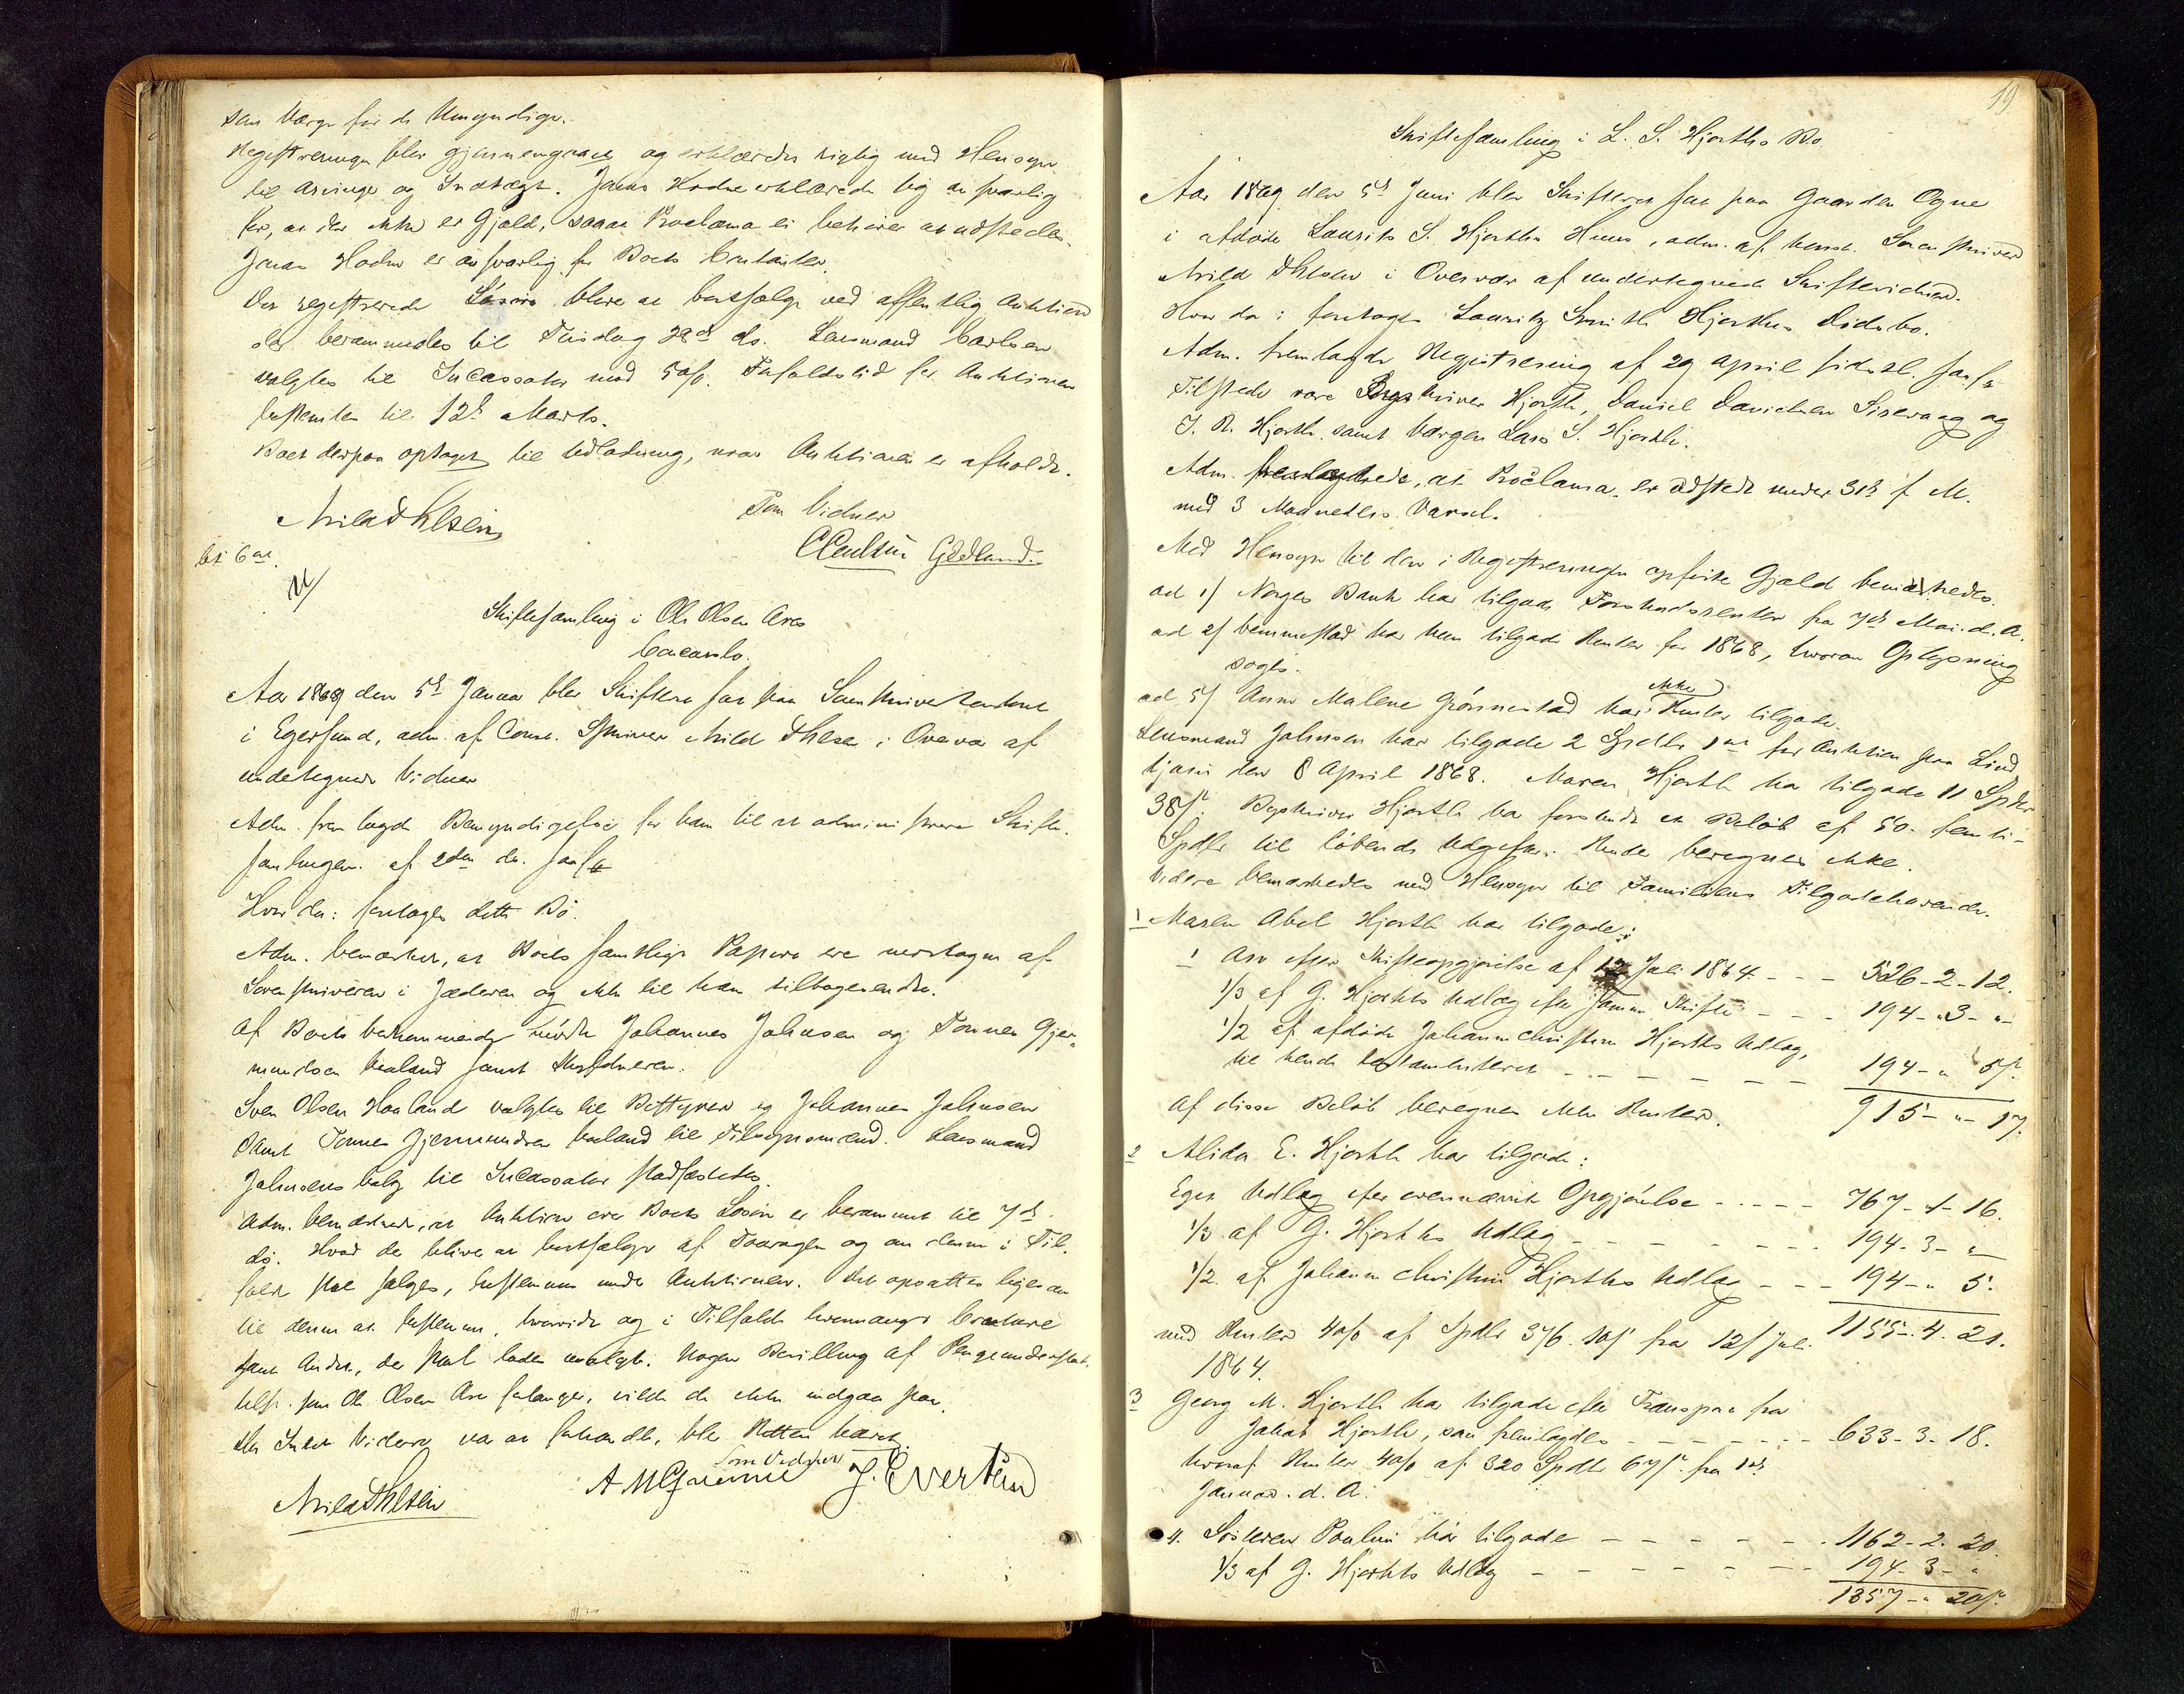 som Værge for de Umyndige.
Registreringen blev gjennemgaaet og erklæredes rigtig med Hensyn
til Arvinger og Indtægt. Jonas Hodne erklærede sig ansvarlig
for, at der ikke er Gjæld, saaat Proclama ei behøver at udstedes.
Jonas Hodne er ansvarlig for Boets Contanter.
Det registrerede Løsøre bliver at bortsælge ved offentlig Auktion
der berammedes til Tirsdag 28de ds. Lensmand Carlsen
valgtes til Incassator mod 5 o/o. Forfaldstid for Auktionen
bestemtes til 12te Marts.
Boet derpaa optaget til Udlodning, naar Auktionen er afholdt.
Arild Thlsen
Som Vidner
Gjedland.
bet 6
Skiftesamling i Ole Olsen Ares
Concursbo.
Aar 1869 den 5te Januar blev Skifteret sat paa Sorenskriverkontoret
i Egersund, adm. af Const. Sskriver Arild Thlsen i Overvær af
undertegnede Vidner
Adm. fremlagde Bemyndigelse for ham til at administrere Skifte-
samlingen af 2den ds.
Hvor da: foretoges dette Bo.
Adm. bemærket, at Boets samtlige Papirer ere modtagne af
Sorenskriveren i Jæderen og ikke til ham tilbagesendte.
Af Boets Vedkommende mødte Johannes Johnsen og Tønnes Gjer-
mundsen Varland samt Skyldneren.
Sven Olsen Haaland valgtes til Bestyrer og Johannes Johnsen
samt Tønnes Gjermundsen Varland til Tilsynsmænd. Lensmand
Johnsens Valg til Incassator stadfæstedes.
Adm. bemærkede, at Auktion over Boets Løsøre er berammet til 7de
ds. Hvad der bliver at bortsælge af Tourogen og om denne i Til-
fælde skal sælges, bestemmes under Auktionen. Det opsattes ligesaa
til denne at bestemme, hvorvidt og i Tilfælde hvormange Creature
samt Andet, der skal lades usolgt. Nogen Bevilling af Pengeunderstøt-
telse som Ole Olsen Are forlanger, vilde de ikke indgaa paa.
Da Intet Videre var at forhandle, blev Retten hævet.
Som Vidner
Arild Thlsen
J. Evertsen
19
Skiftesamling i L. S. Hjorths Bo.
Aar 1869 den 5te Juni blev Skifteret sat paa Gaarden Ogne
i afdøde Laurits S. Hjorths Huus, adm. af const. Sorenskriver
Arild Thlsen i Overvær af undertegnede Skiftevidner.
Hvor da: foretoges Lauritz Smith Hjorths Dødsbo.
Adm. fremlagde Registrering af 29 April sidstl.
Tilstede vare Bogskriver Hjorth, Daniel Danielsen Sirevaag og
J. R. Hjorth samt Værgen Lars S. Hjorth.
Adm. bemærkede, at Proclama er udstedt under 31te f. M.
med 3 Maaneders Varsel.
Med Hensyn til den i Registreringen opførte Gjæld bemærkedes.
ad 1/ Norges Bank har tilgode Forskudsrenter fra 7de Mai d. A.
ad 2/ Bemmestad har kun tilgode Renter for 1868, hvorom Oplysning
søges.
ad 5/ Anne Malene Grønnestad har ikke Renter tilgode.
Lensmand Johnsen har tilgode 2 Spdlr 1 ort for Auktion paa Lind-
tjørn den 8 April 1868. Maren Hjorth har tilgode 11 Spdlr
38 s. Bogskriver Hjorth har forskudt et Beløb af 50 femti-
Spdlr til løbende Udgifter. Rente beregnes ikke.
Videre bemærkedes med Hensyn til Familiens Tilgodehavende.
1 Maren Abel Hjorth har tilgode:
1 Arv efter Skifteopgjørelse af 12 Juli 1864 - - - 526-2-12.
1/3 af G. Hjorths Udlæg efter samme Skifte - - - 194-3-"-
1/2 af afdøde Johanne Christine Hjorths Udlæg,
til hende testamenteret - - - - - - 194-" 5 s.
Af disse Beløb beregnes ikke Renter. 915-"-17.
2 Alida E. Hjorth har tilgode:
Eget Udlæg efter ovennævnte Opgjørelse - - - - 767-1-16.
1/3 af G. Hjorths Udlæg - - - - - - - 194-3-"
1/2 af Johanne Christine Hjorths Udlæg - - - 194-" 5.
med Renter 4 o/o af Spdlr 376. 10 s fra 12/ Juli 1155-4-21.
1864.
3 Georg M. Hjorth har tilgode efter Transport fra
Jakob Hjorth, som fremlagdes - - - - - - - 633-3-18.
hvoraf Renter 4 o/o af 320 Spdlr 67 s. fra 1ste
Januar d. A.
4. Søsteren Pauline har tilgode - - - - - - 1162-2-20.
1/3 af G. Hjorths Udlæg - - - - - - 194-3-"
1357-" 20 s.